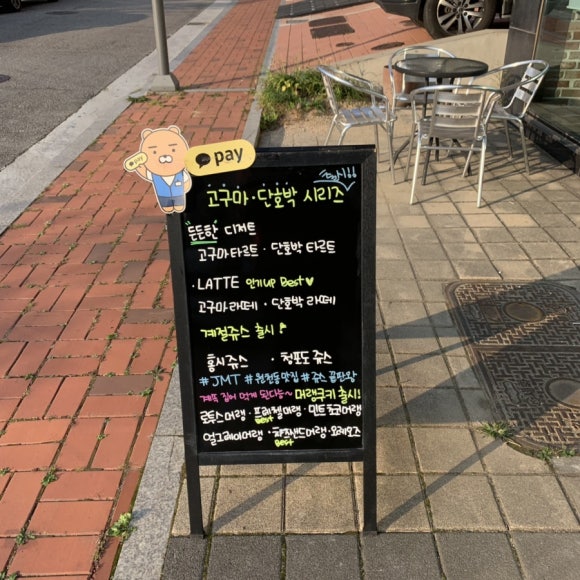 pay
pay
고구마·단호박 시리즈
든든한 디저트
고구마타르트 · 단호박 타르트
·LATTE 인기up Best♥
고구마라떼 · 단호박 라떼
계절쥬스 출시!
홍시쥬스 · 청포도 쥬스
#JMT #원천동맛집 #쥬스 끝판왕
계속 집어 먹게 된다능~ 머랭쿠키 출시!
로투스머랭 · 프레첼머랭 · 민트초코머랭
Best
얼그레이머랭 · 치즈샌드머랭 · 요레오즈
Best